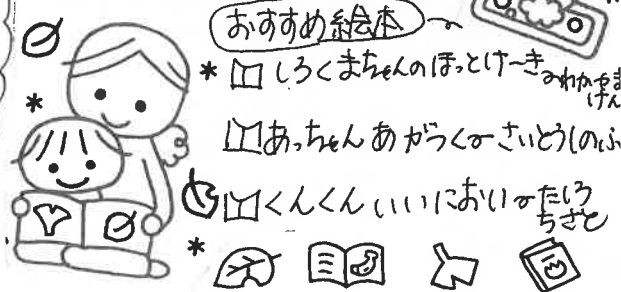 おすすめ絵本
しろくまちゃんのほっとけーき わかやまけん
あっちゃんあがつく さいとうしのぶ
くんくんいいにおい たしろちさと